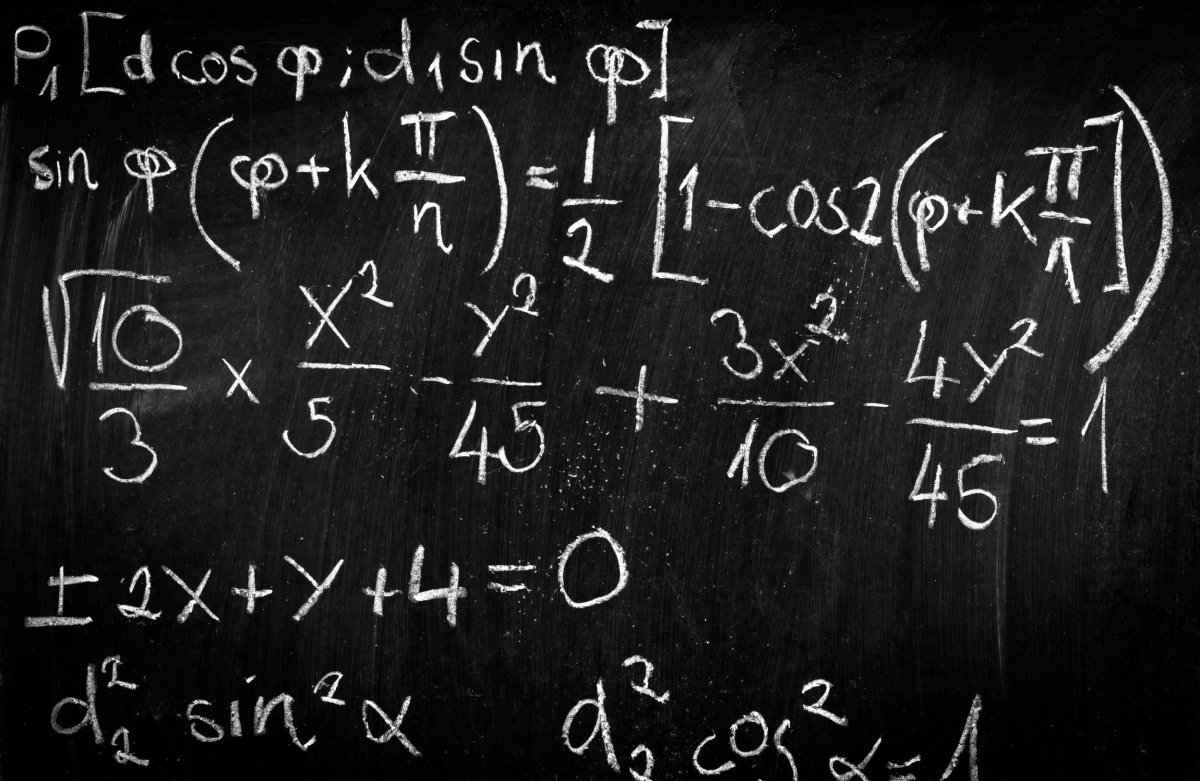 P₁[d cos φ; d₁ sin φ]
sin φ(φ+k π/n) = 1/2 [1-cos2(φ+k π/1])
√10/3 × x²/5 - y²/45 + 3x²/10 - 4y²/45 = 1
± 2x+y+4=0
d₂² sin²α d₂² cos²α=1